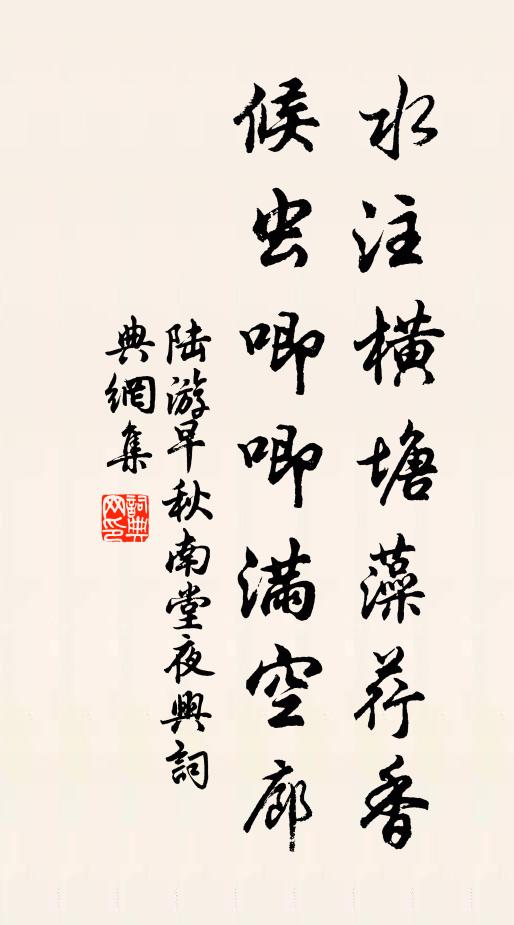 水注横塘藻荇香
候虫唧唧满空廊
陆游早秋南堂夜興詞
典網集
詞典网印